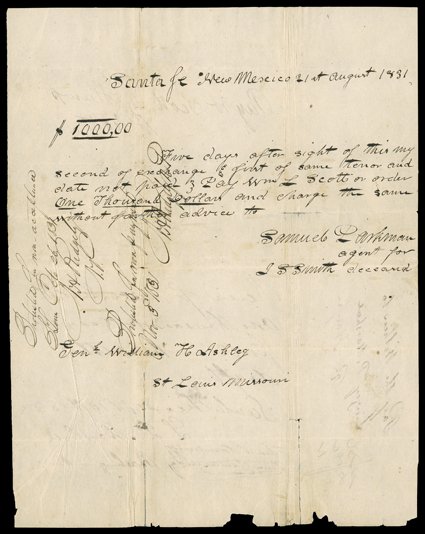 Santa fe New Mexico 21st August 1831
$ 1000,00
Five days after sight of this my
second of exchange (first of same tenor and
date not paid) Pay Wm L Scott or order
One Thousand Dollars and charge the same
without further advice to
Samuel Parkman
agent for
J S Smith deceased
Genl. William H Ashley
St Louis Missouri
Protested for non
Nov 5